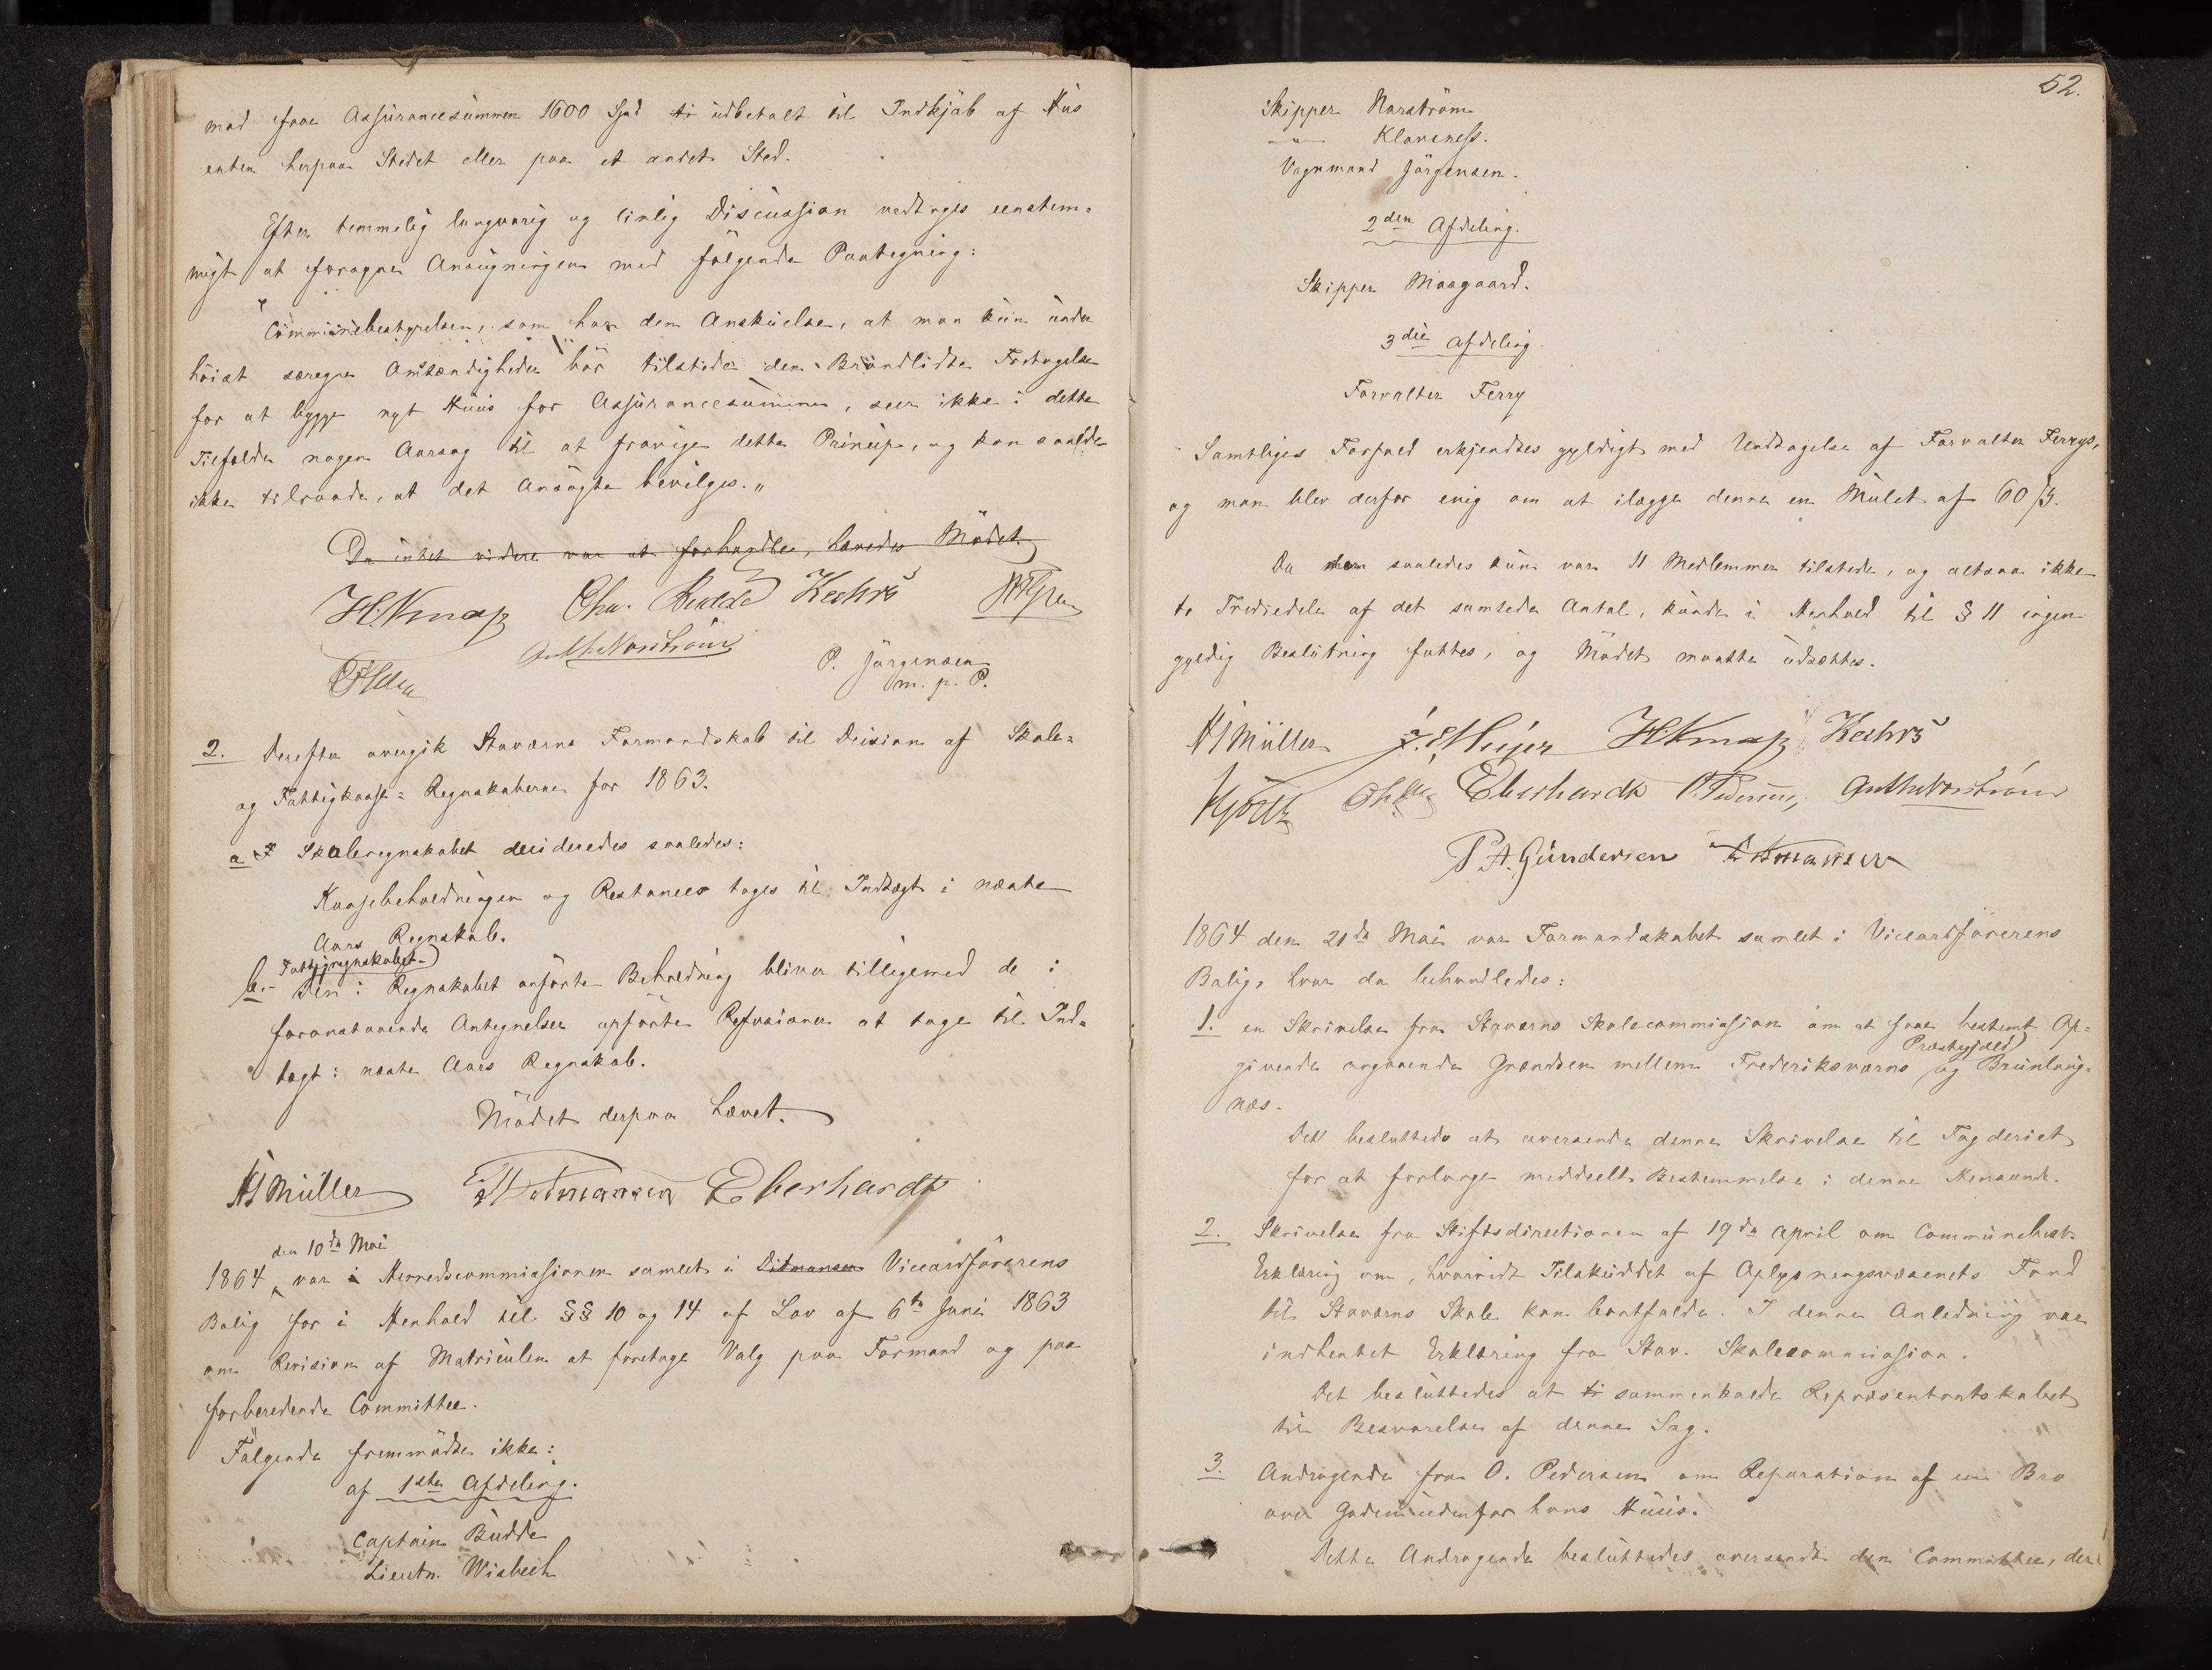 maa faae Assurancesummen 1600 Spd ti udbetalt til Indkjöb af Hus
enten herpaa Stedet eller paa et andet Sted.
Efter temmelig langvarig og livlig Discussion vedtoges eenstem-
migt at forsyne Ansögningen med fölgende Paategning:
"Communebestyrelsen, som har den Anskuelse, at man kun under
höist særegne Omstændigheder bör tilstede den Brandlidte Fortagelse
for at bygge nyt Huus for Assurancesummen, seer ikke i dette
Tilfælde nogen Aarsag til at fravige dette Princip, og kan saaledes
ikke tilraade, at det Ansögte bevilges."
Da intet videre var at forhandles, hævedes Mödet.
H. Knap Chr. Budde
Ant. M. Norström P. Jörgensen
m. p. P.
2. Derefter overgik Staværns Formandskab til Decision af Skole-
og Fattigkasse-Regnskaberne for 1863.
a Skoleregnskabet decideredes saaledes:
Kassebeholdningen og Restancer tages til Indtægt i næste
Aars Regnskab.
Fattigregnskabet
b.- Den i Regnskabet anförte Beholdning bliver tilligemed de i
foranstaaende Antegnelser opförte Refusioner at tage til Ind-
tægt i næste Aars Regnskab.
Mödet derpaa hævet.
HJ Müller Ditmansen Eberhardt
den 10de Mai
1864 var i Herredscommissionen samlet i Ditmansen Viceordförerens
Bolig for i Henhold til §§ 10 og 14 af Lov af 6te Juni 1863
om Revision af Matriculen at foretage Valg paa Formand og paa
forberedende Committee.
Fölgende fremmödte ikke:
af 1ste Afdeling.
Captain Budde
Lieutn. Wisbech
52.
Skipper Norström
—"— Klaveness.
Vognmand Jörgensen.
2den Afdeling.
Skipper Maagaard.
3die Afdeling
Forvalter Ferry
Samtliges Forfald erkjendtes gyldigt med Undtagelse af Forvalter Ferrys,
og man blev derfor enig om at ilægge denne en Mulct af 60 ß.
Da der saaledes kun var 11 Medlemmer tilstede, og altsaa ikke
to Trediedele af det samlede Antal, kunde i Henhold til § 11 ingen
gyldig Beslutning fattes, og Mödet maatte udsættes.
HJ Müller J. Meyer H. Knap
Eberhardt O. Pedersen Ant. M. Norström
P. A. Gundersen Ditmansen
1864 den 21de Mai var Formandskabet samlet i Viceordförerens
Bolig, hvor da behandledes:
1. en Skrivelse fra Staværns Skolecommission om at faae bestemt Op-
Præstegjeld
givende angaaende Grændsen mellem Frederiksværns og Brunlang-
næs.
Det besluttedes at oversende denne Skrivelse til Fogderiet
for at forlange meddeelt Bestemmelse i denne Henseende.
2. Skrivelse fra Stiftsdirectionen af 19de April om Communebest.
Erklæring om, hvorvidt Tilskuddet af Oplysningsvæsenets Fond
til Staværns Skole kan bortfalde. I denne Anledning var
indhentet Erklæring fra Stav. Skolecommission.
Det besluttedes at ti sammenkalde Repræsentantskabet
til Besvarelse af denne Sag.
3. Andragende fra O. Pedersen om Reparation af en Bro
over Gaden udenfor hans Huus.
Dette Andragende besluttedes oversendt den Committee, der